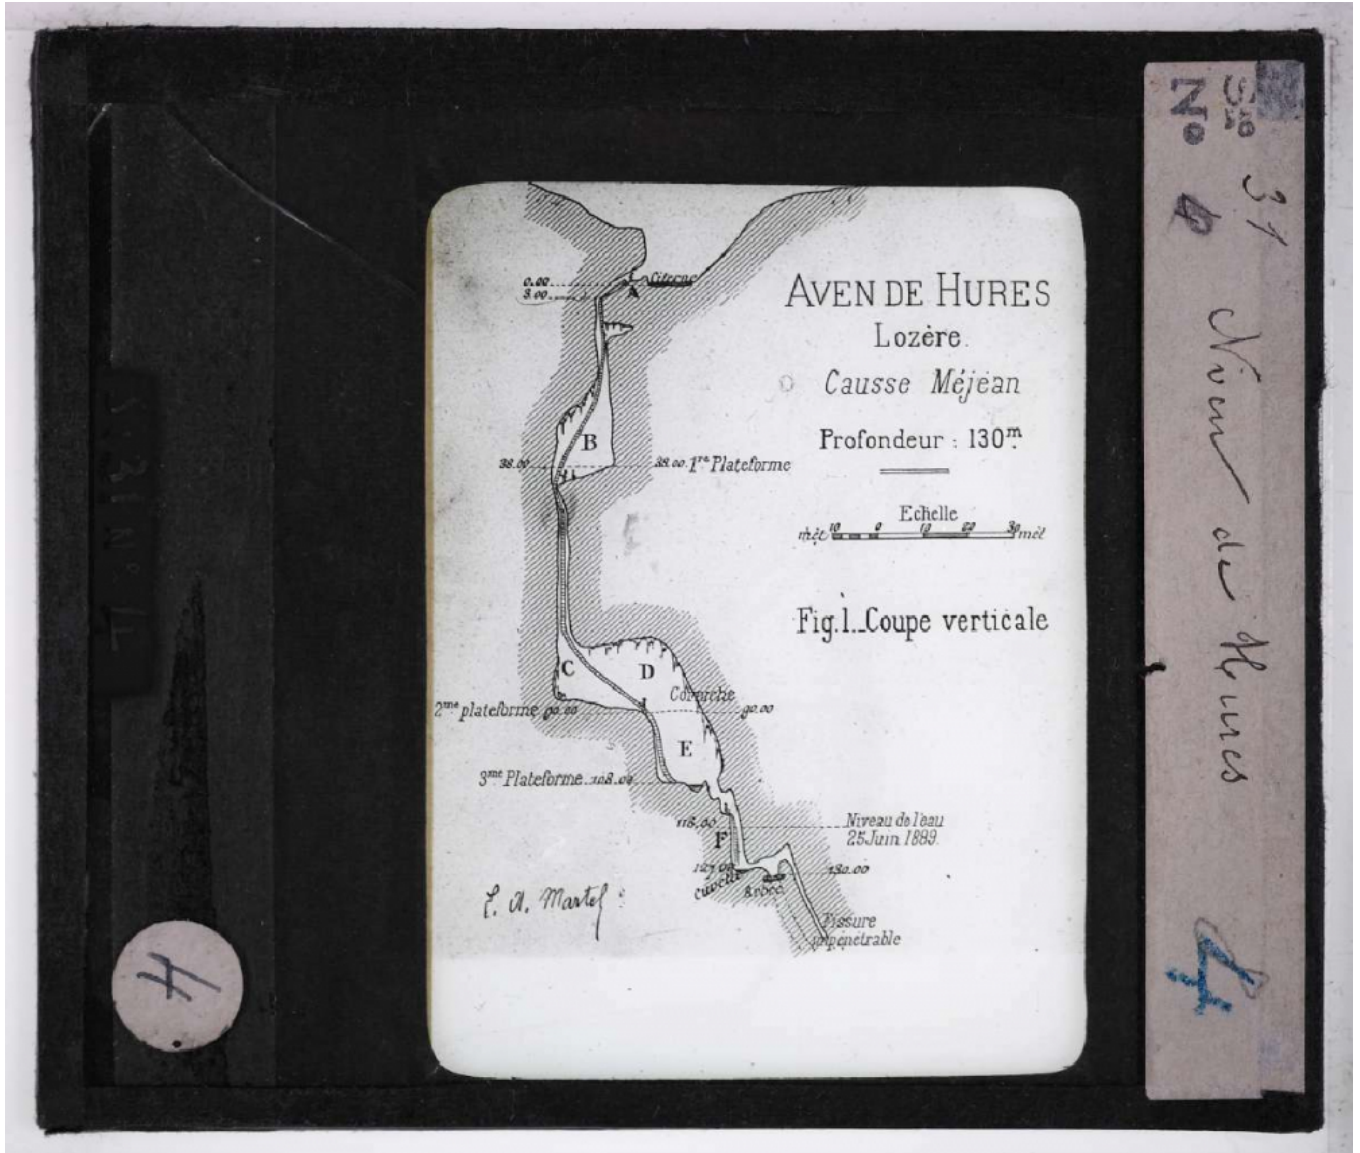 AVEN DE HURES
Lozère
Causse Méjean
Profondeur : 130m
Echelle
mèt 10 0 10 20 30 mèt
Fig.1._Coupe verticale
0.00
3.00
Citerne
A
B
38.00
38.00 1re Plateforme
C
D
2me plateforme 90.00
90.00
E
3me Plateforme 108.00
118.00
Niveau de l'eau
25 Juin 1889.
F
130.00
Fissure
impénétrable
E. A. Martel
4
Sie 31
No 4
de Hures
4